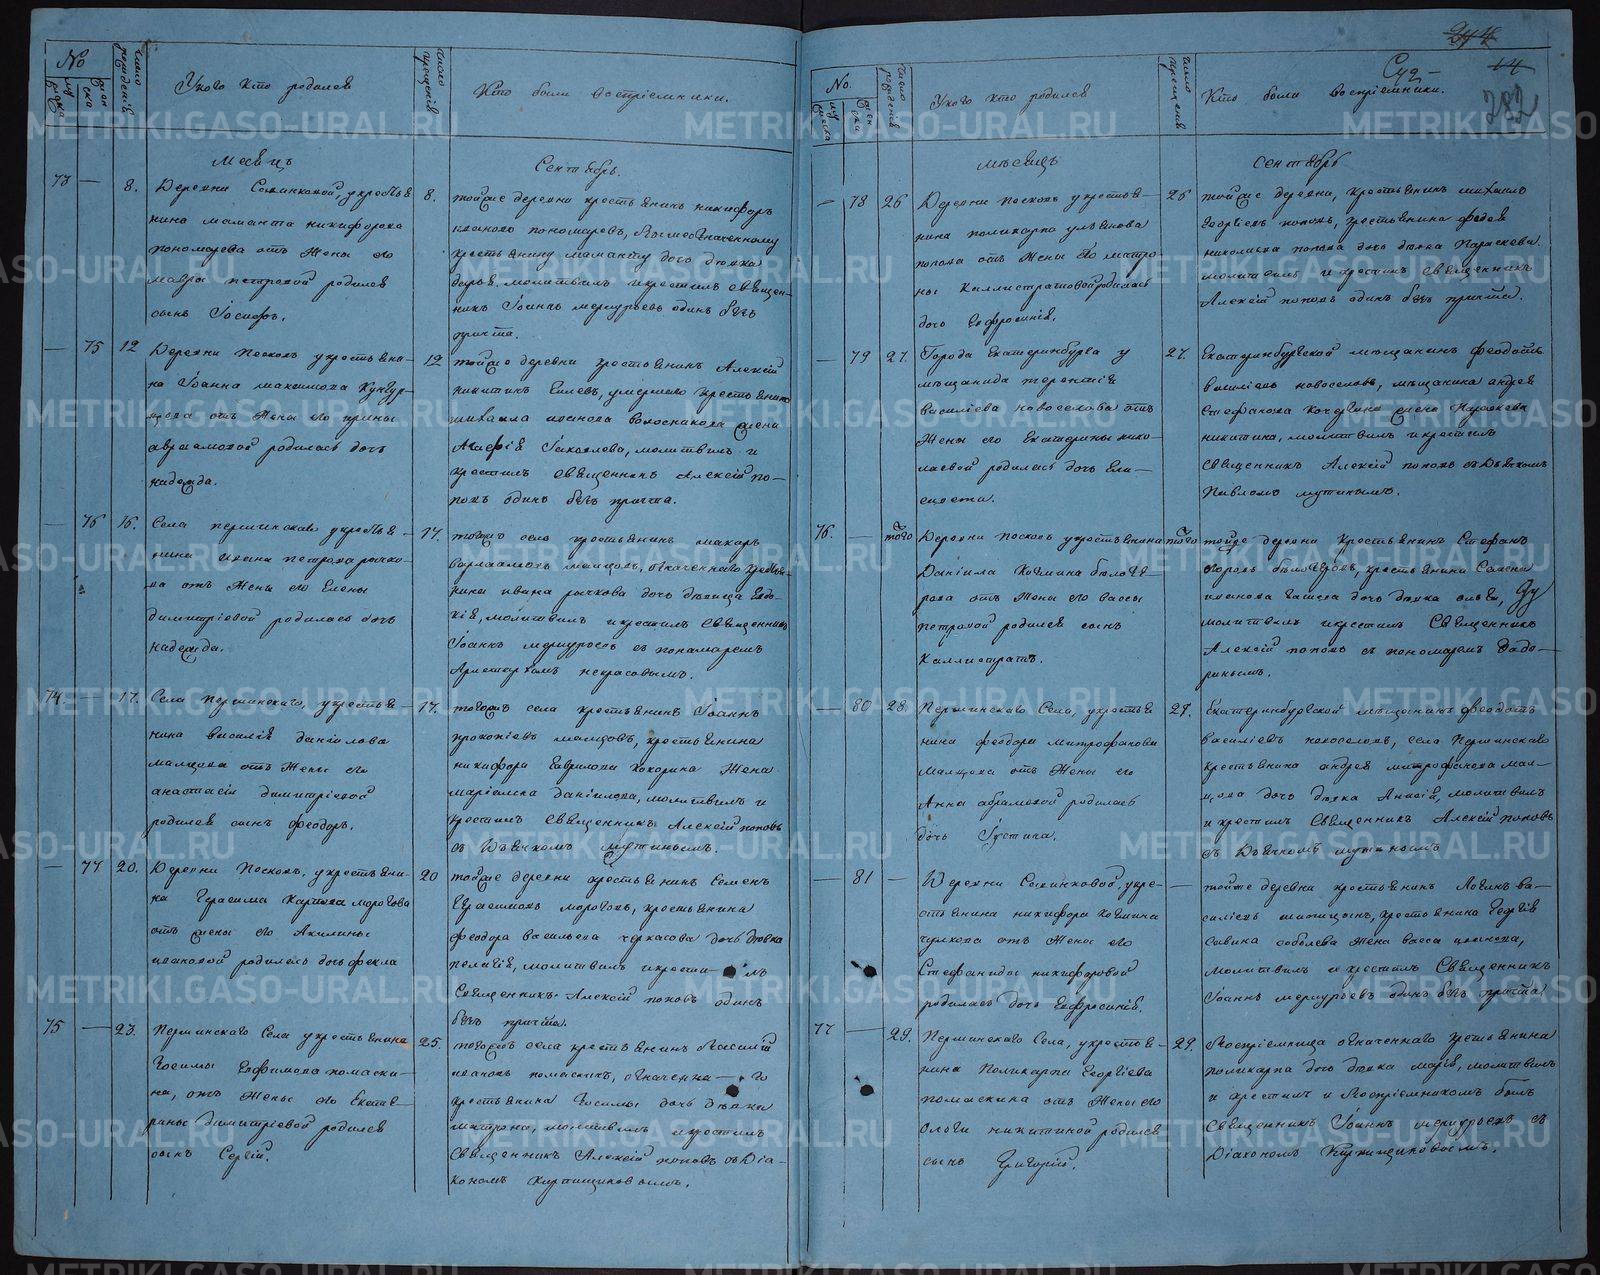 №
мужска
женска
число рожденія
У кого кто родился
число крещенія
Кто были воспріемники.
Месяцъ
Сентябрь.
73 — 8.
Деревни
крестья
нина маманта никифорова
пономарева отъ жены его
мавры петровой родился
сынъ Іосифъ.
8.
тойже деревни крестьянинъ никифоръ
ивановъ пономаревъ,
крестьянину маманту дочь дѣвка
дарья. молитвилъ и крестилъ священ-
никъ Іоаннъ меркурьевъ одинъ безъ
причта.
— 75 12
Деревни Песковъ у крестьяни-
на Іоанна максимова Кунгур-
цова отъ жены его ирины
авраамовой родилась дочь
надежда.
12
тойже деревни крестьянинъ Алексій
никитинъ умершаго крестьянина
михаила иванова жена
Іаковлева, молитвилъ и
крестилъ священникъ Алексій по-
повъ одинъ безъ причта.
— 76 16.
Села перминскаго у крестья
нина ивана петрова рычко-
ва отъ жены его Елены
димитріевой родилась дочь
надежда.
17.
тогожъ села крестьянинъ макаръ
означеннаго крестья-
нина ивана рычкова дочь дѣвица Евдо-
кія, молитвилъ и крестилъ Священникъ
Іоаннъ меркурьевъ съ пономаремъ
Аристархомъ некрасовымъ.
74. — 17.
Села Перминскаго, у крестья
нина василія даніилова
малцова отъ жены его
анастасіи димитріевой
родился сынъ феодоръ.
17.
тогожъ села крестьянинъ Іоаннъ
прокопіевъ малцовъ, крестьянина
никифора гаврилова кокорина жена
даніилова, молитвилъ и
крестилъ священникъ Алексій поповъ
съ Дьячкомъ мутинымъ.
— 77 20.
Деревни Песковъ, у крестьяни-
на Герасима Карпова морогова
отъ жены его Акилины
ивановой родилась дочь фекла
20
тойже деревни крестьянинъ Семенъ
Герасимовъ морогов, крестьянина
феодора васильева черкасова дочь дѣвка
пелагія, молитвилъ и крести — лъ
Священникъ Алексій поповъ одинъ
безъ причта.
75 — 23.
Перминскаго Села у крестьянина
Зосимы Евфимова помаски-
на, отъ жены его Екате-
рины Димитріевой родился
сынъ Сергій.
25.
тогожъ села крестьянинъ Василій
ивановъ помаскинъ, означенна — го
крестьянина Зосимы дочь дѣвка
матрона, молитвилъ и крестилъ
Священникъ Алексій поповъ съ Діа-
кономъ Кирпищиковымъ.
244
14
282
№.
мужеска
женска
число рожденія
У кого кто родился
число крещенія
Кто были воспріемники.
мѣсяцъ
Сентябрь
— 78 26
Деревни Песковъ у крестья-
нина поликарпа ульянова
попова отъ жены его матро
ны Каллистратовой родилась
дочь Евфросинія.
26
тойже деревни, крестьянинъ михаилъ
Георгіевъ поповъ, крестьянина федея
николаева попова дочь дѣвка Параскева.
молитвилъ и крестилъ Священникъ
Алексій поповъ одинъ безъ причта.
— 79 27.
Города Екатеринбурга у
мѣщанина терентія
василіева новоселова отъ
жены его Екатерины нико-
лаевой родилась дочь Ели-
савета.
27.
Екатеринбургской мѣщанинъ феодотъ
василіевъ новоселовъ, мѣщанина андрея
Стефанова жена Параскева
никитина, молитвилъ и крестилъ
Священникъ Алексій поповъ съ Дьячкомъ
Павломъ мутинымъ.
76. — того
Деревни Песковъ у крестьянина
Даніила Козмина
отъ жены его вассы
петровой родился сынъ
Каллистратъ.
того
тойже деревни Крестьянинъ Стефанъ
крестьянина
иванова дочь дѣвка
молитвилъ и крестилъ Священникъ
Алексій поповъ съ пономаремъ
— 80 28
Перминскаго Села, у крестья
нина феодора митрофанова
малцова отъ жены его
Анны абрамовой родилась
дочь Іустина.
27.
Екатеринбургской мѣщанинъ феодотъ
василіевъ новоселовъ, села Перминскаго
крестьянина андрея митрофанова мал-
цова дочь дѣвка Анисія, молитвилъ
и крестилъ Священникъ Алексій поповъ
съ Дьячкомъ мутинымъ
— 81 —
Деревни у кре-
стьянина никифора Козмина
отъ жены его
Стефаниды никифоровой
родилась дочь Евфросинія.
—
тойже деревни крестьянинъ Логинъ ва-
силіевъ крестьянина Георгія
савина соболева жена васса иванова,
молитвилъ и крестилъ Священникъ
Іоаннъ меркурьевъ одинъ безъ причта
77 — 29.
Перминскаго Села, у крестья-
нина Поликарпа Георгіева
помаскина отъ жены его
Ольги никитиной родился
сынъ Григорій.
29.
Воспріемница означеннаго крестьянина
поликарпа дочь дѣвка марія, молитвилъ
и крестилъ и Воспріемникомъ былъ
Священникъ Іоаннъ меркурьевъ съ
Діакономъ Кирпищиковымъ.
METRIKI.GASO-URAL.RU